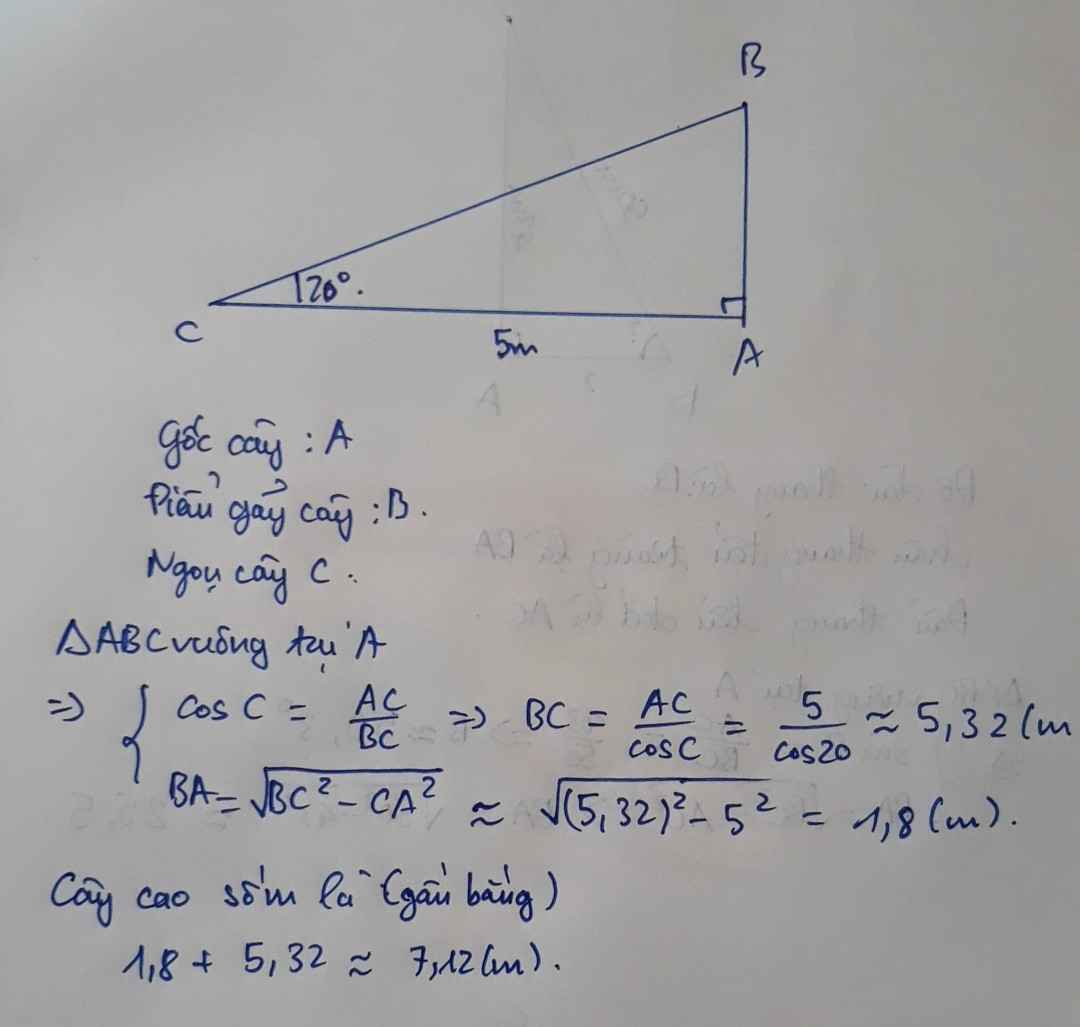 B
20°.
C
5m
A
Gốc cây : A
Điểm gãy cây : B.
Ngọn cây C.
ΔABC vuông tại A
=> { cos C = AC/BC => BC = AC/cosC = 5/cos20 ≈ 5,32 (m
BA = √(BC² - CA²) ≈ √((5,32)² - 5²) = 1,8 (m).
Cây cao số m là (gần bằng)
1,8 + 5,32 ≈ 7,12 (m).